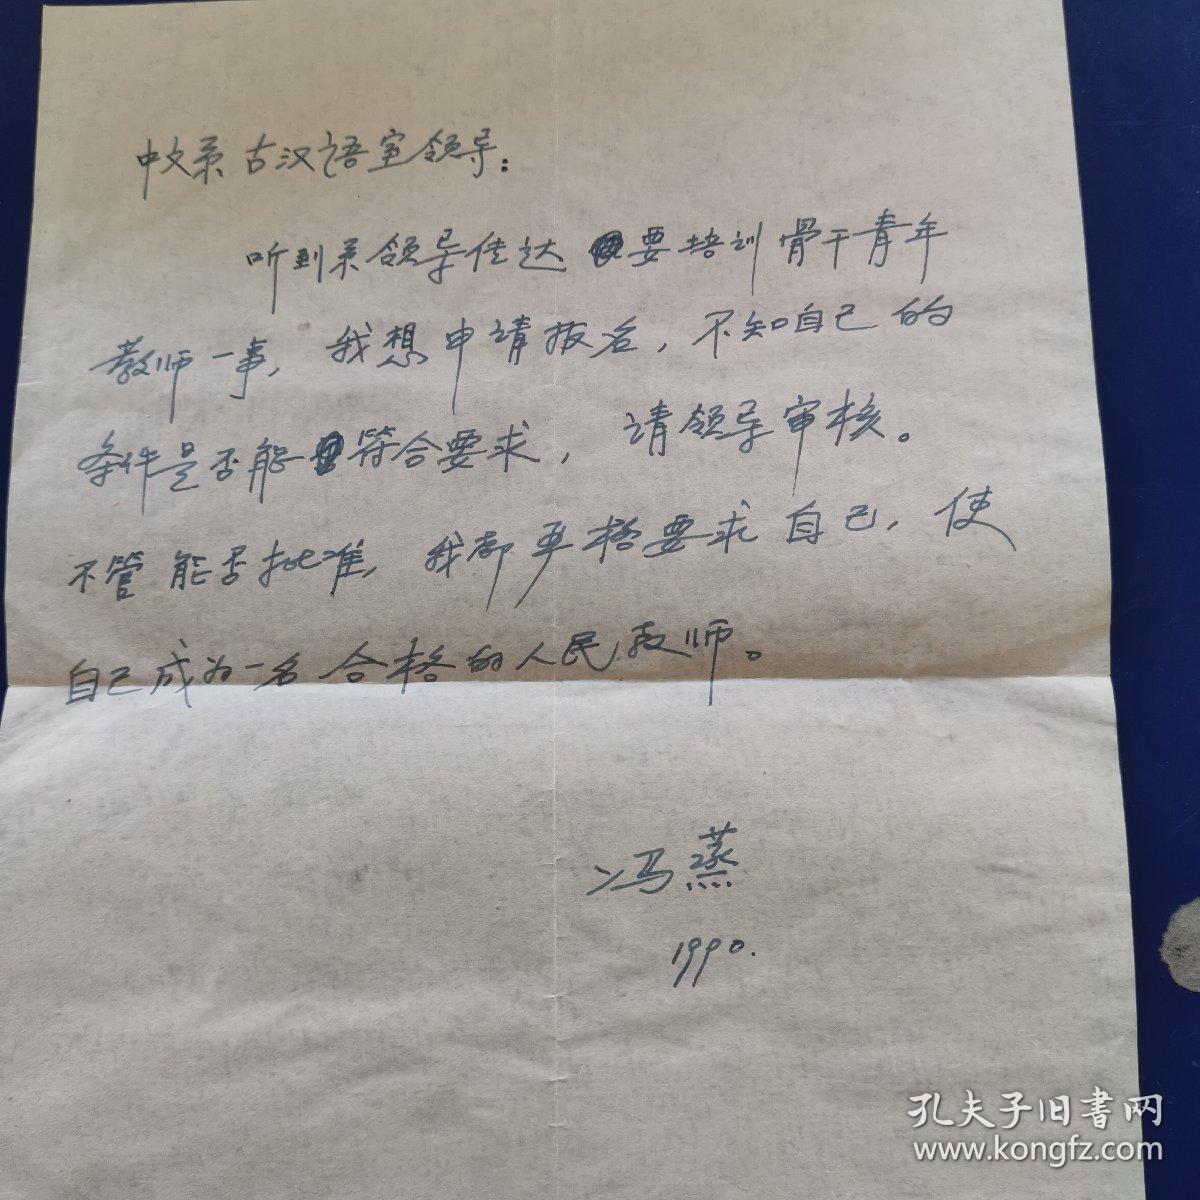 中文系古汉语室领导：
听到系领导传达要培训骨干青年
教师一事，我想申请报名，不知自己的
条件是否能符合要求，请领导审核。
不管能否批准，我都要严格要求自己，使
自己成为一名合格的人民教师。
冯蒸
1990.
孔夫子旧书网
www.kongfz.com